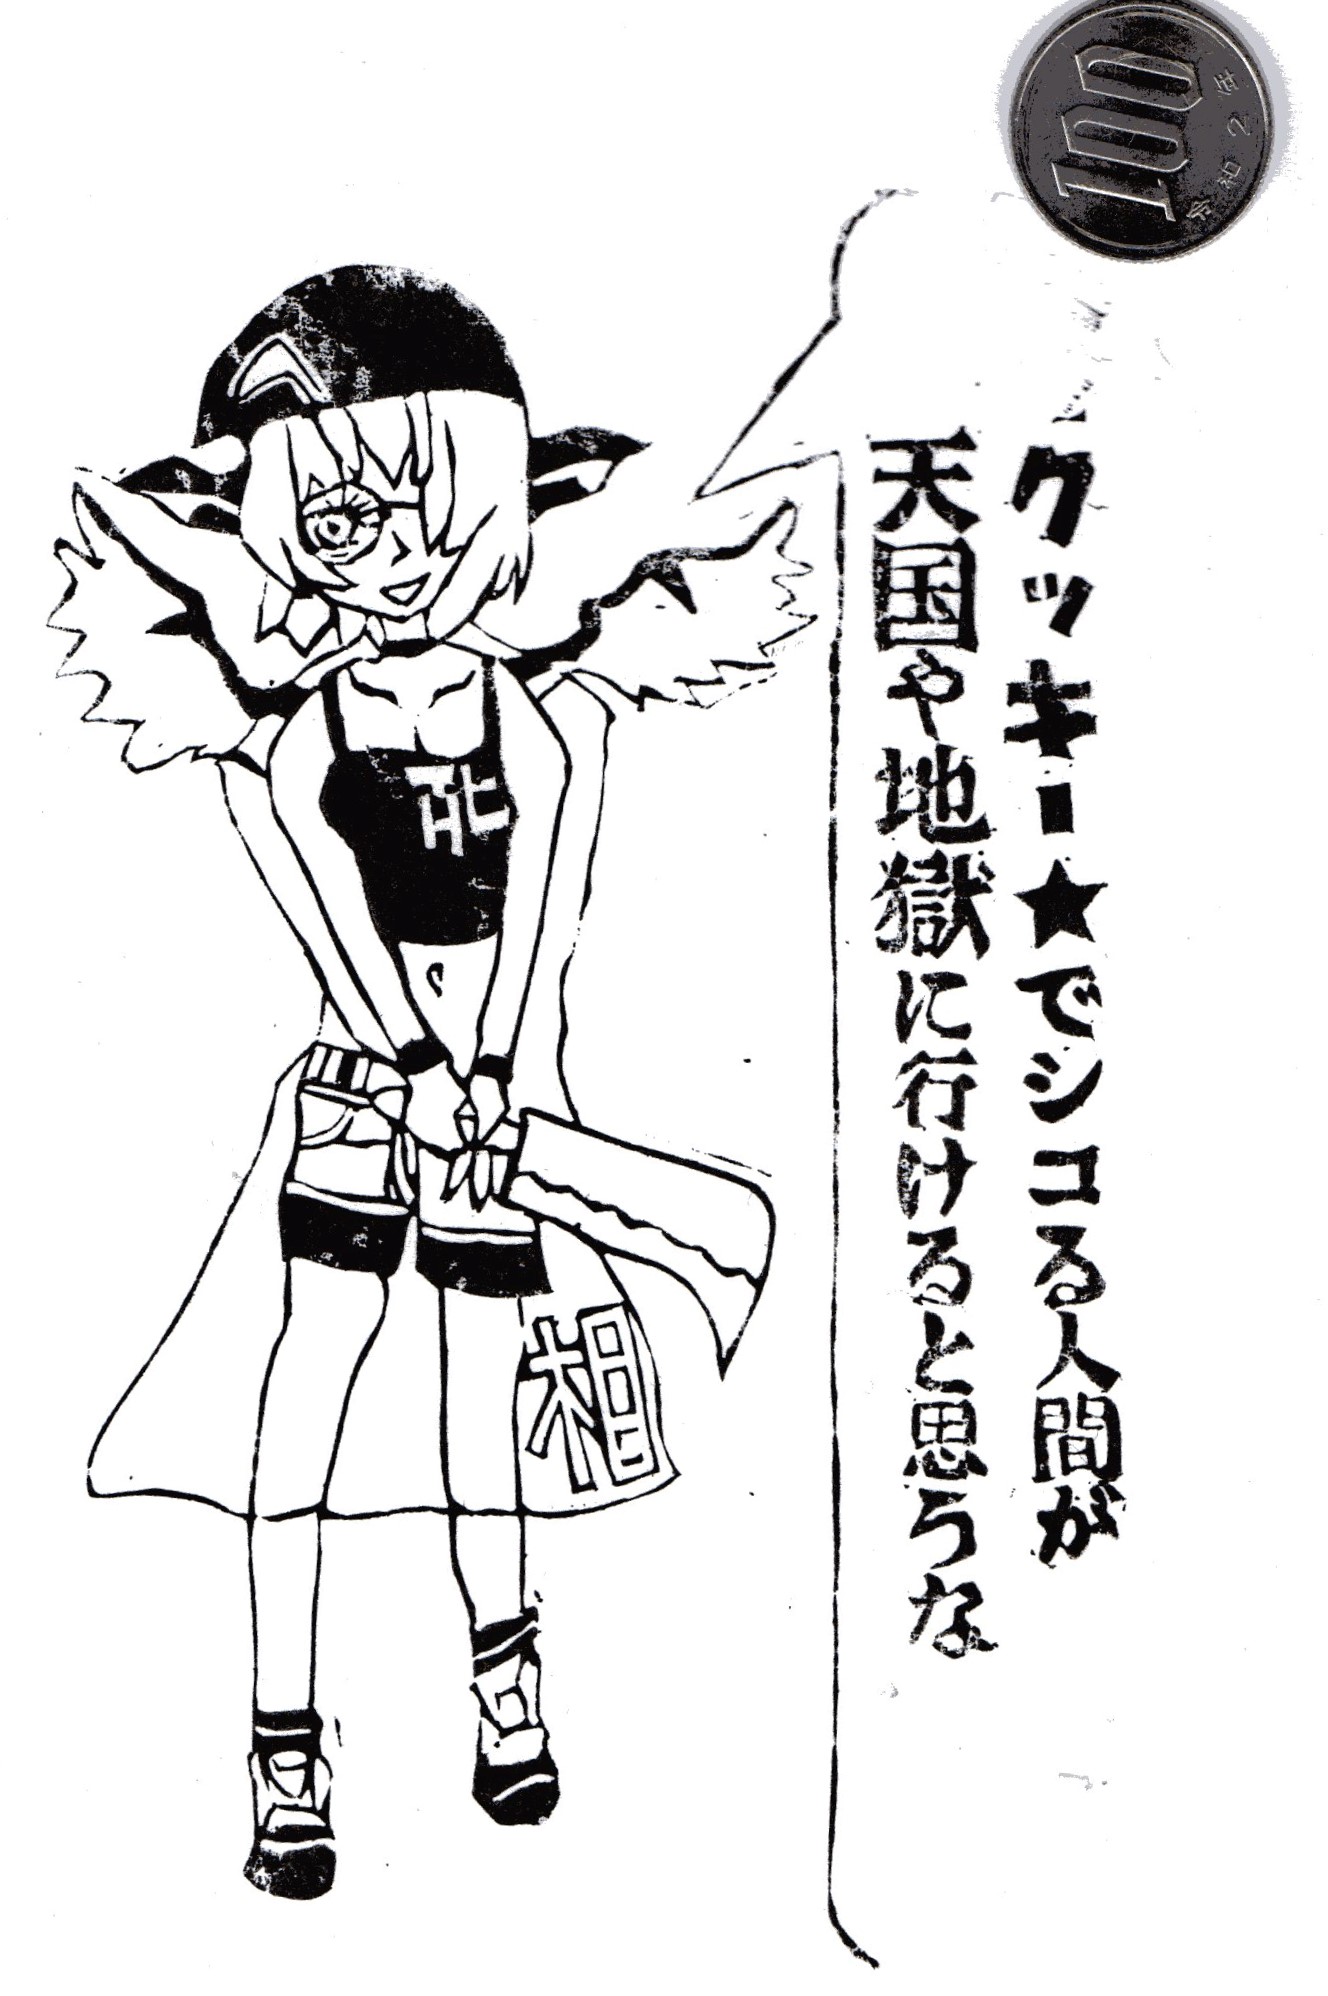 100
令和2年
クッキー★でシコる人間が
天国や地獄に行けると思うな
相